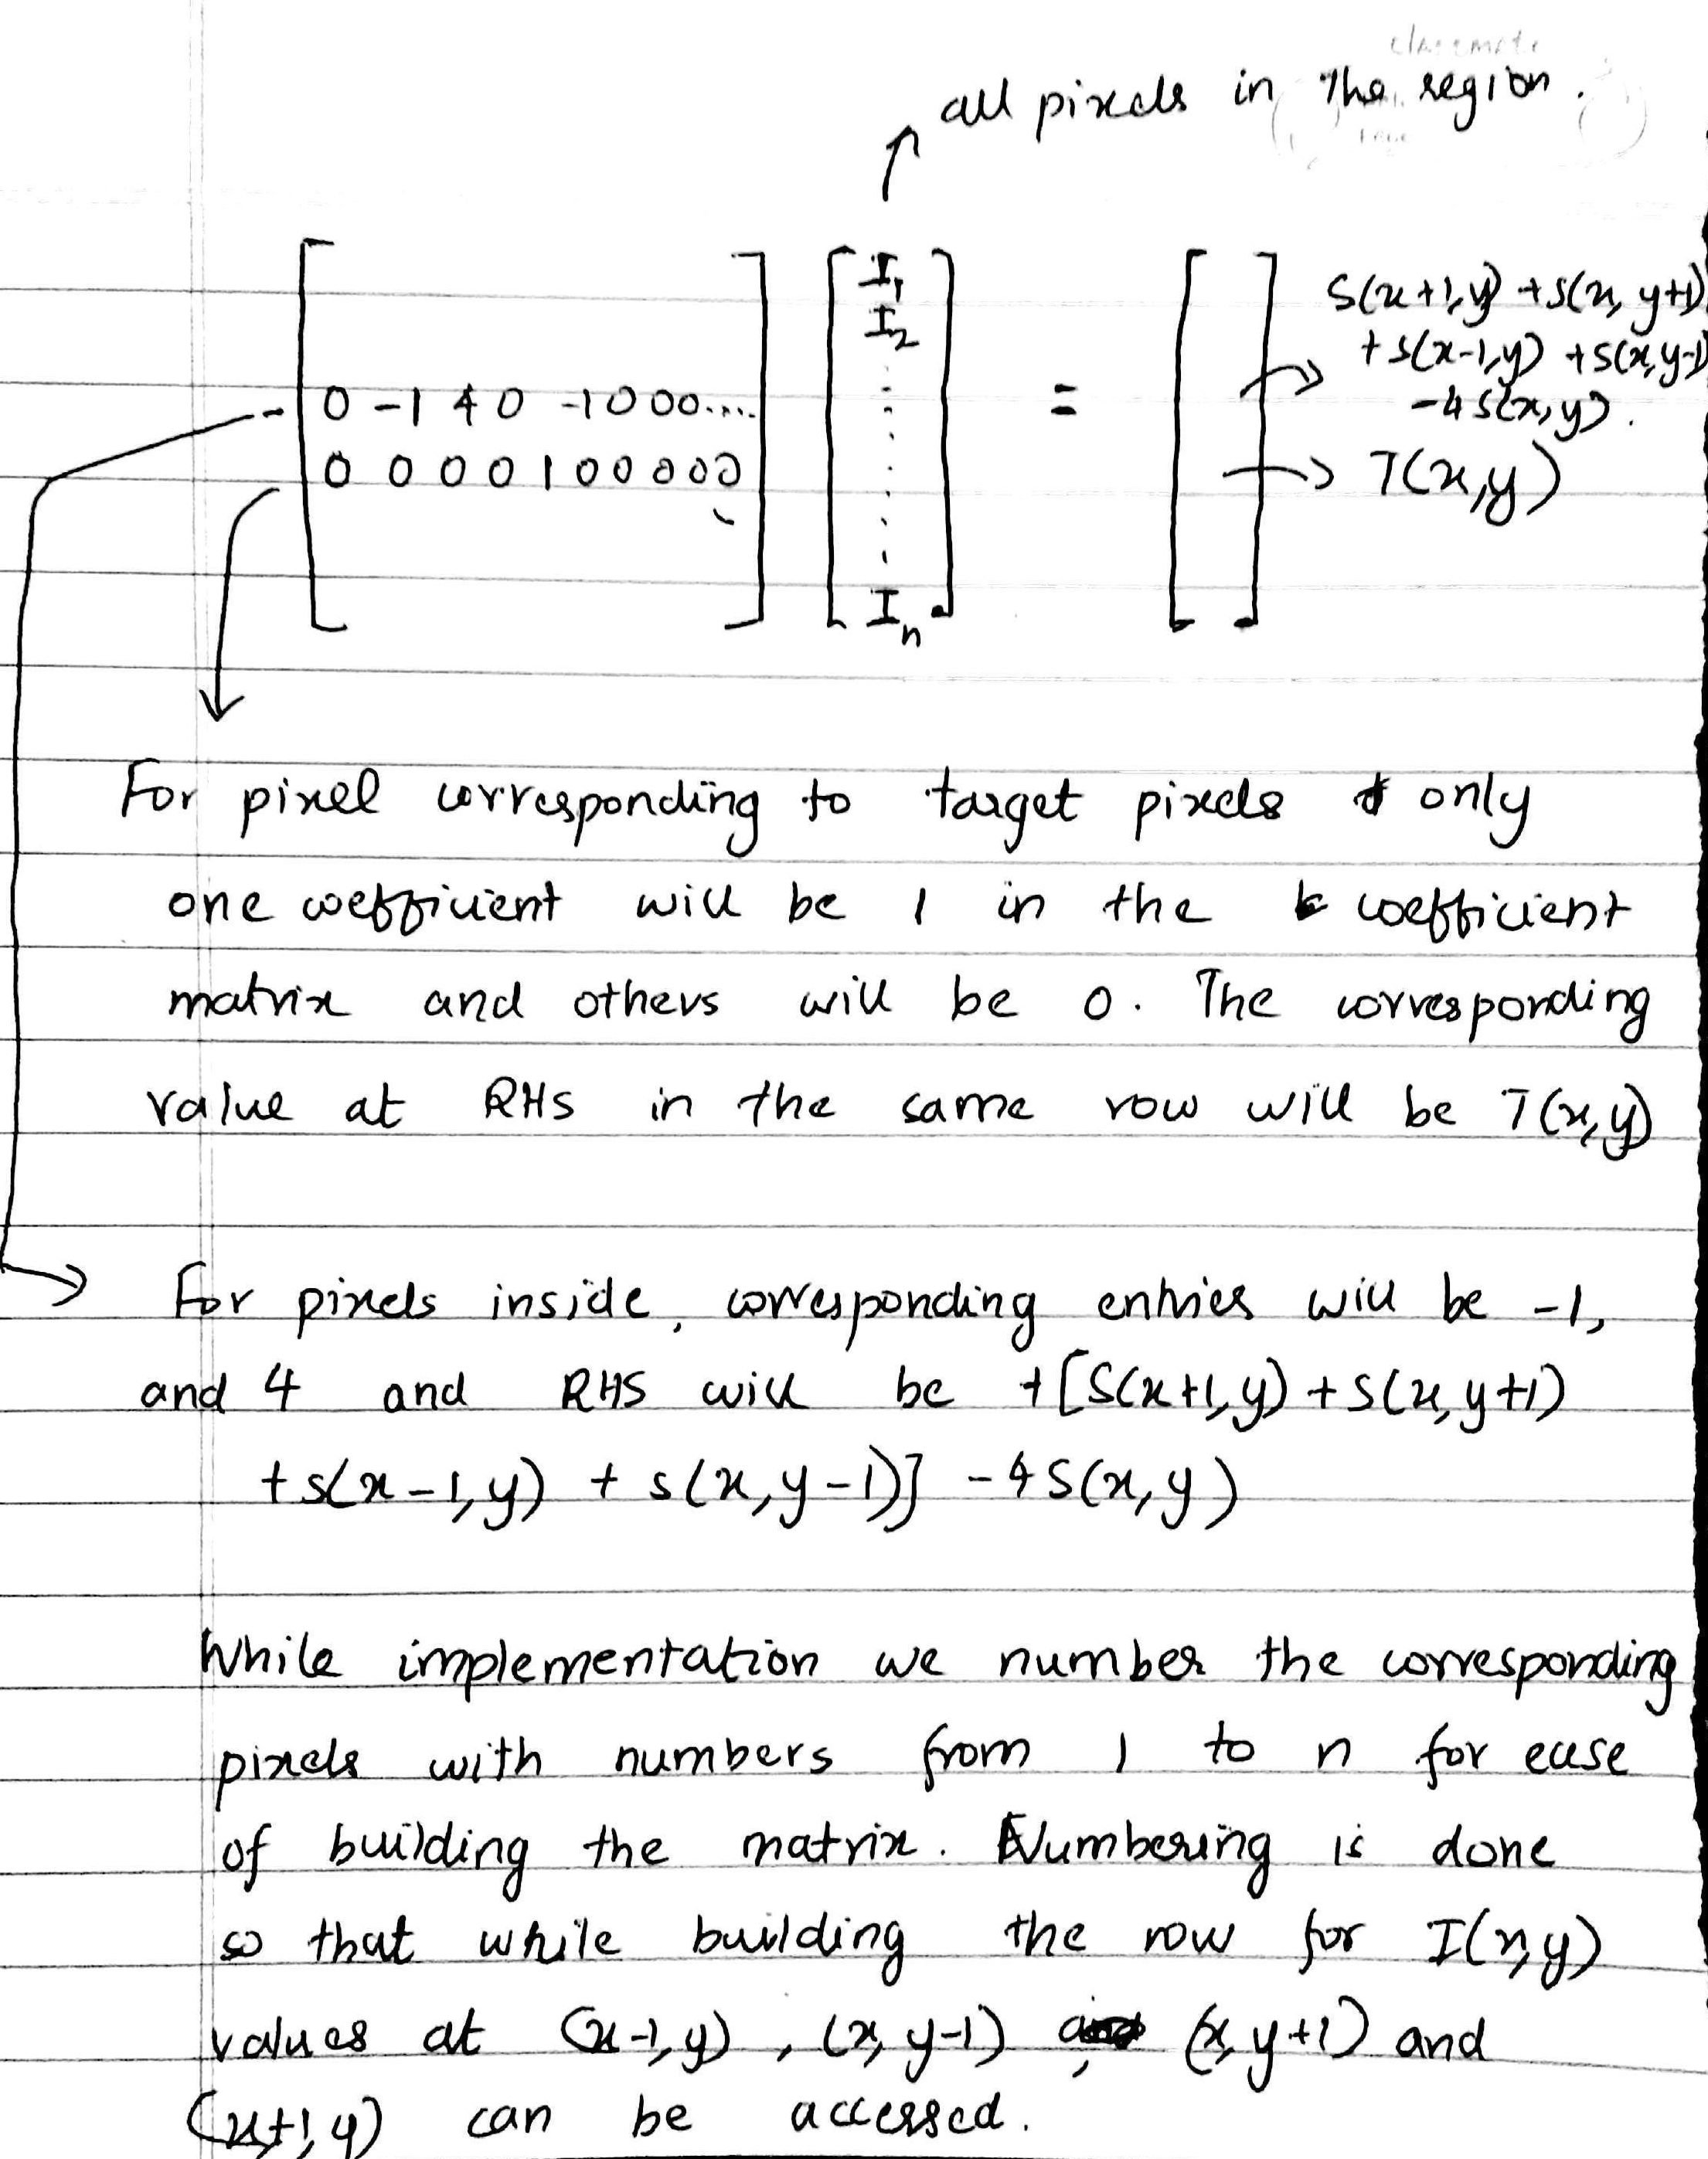 classmate
all pixels in the region.
I1
I2
0 -1 4 0 -1 0 0 0....
0 0 0 0 1 0 0 0 0 0
In
=
S(x+1,y) + S(x, y+1)
+ S(x-1,y) + S(x,y-1)
-4 S(x,y).
T(x,y)
For pixel corresponding to target pixels only
one coefficient will be 1 in the coefficient
matrix and others will be 0. The corresponding
value at RHS in the same row will be T(x,y)
For pixels inside, corresponding entries will be -1,
and 4 and RHS will be +[S(x+1,y) + S(x,y+1)
+ S(x-1,y) + S(x,y-1)] - 4S(x,y)
While implementation we number the corresponding
pixels with numbers from 1 to n for ease
of building the matrix. Numbering is done
so that while building the row for I(x,y)
values at (x-1,y), (x,y-1), (x,y+1) and
(x+1,y) can be accessed.